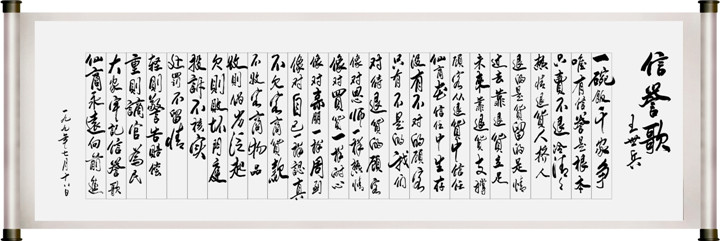 信誉歌
王世兵
一碗飯千家争
唯有信誉是根本
只卖不退冷清々
热情退货人挤人
退的是货留的是情
过去靠退货立足
未来靠退货支撑
顾客从退货中信任
仙商在信任中生存
没有不对的顾客
只有不是的我们
对待退货的顾客
像对恩师一样热情
像对买货一样耐心
像对亲朋一样周到
像对自己一样认真
不欠客商货款
不收客商物品
收则
欠则败坏门庭
投诉不核实
处罚不留情
轻则警告赔偿
重则谪官为民
大家牢记信誉歌
仙商永远向前进
一九九年七月十八日